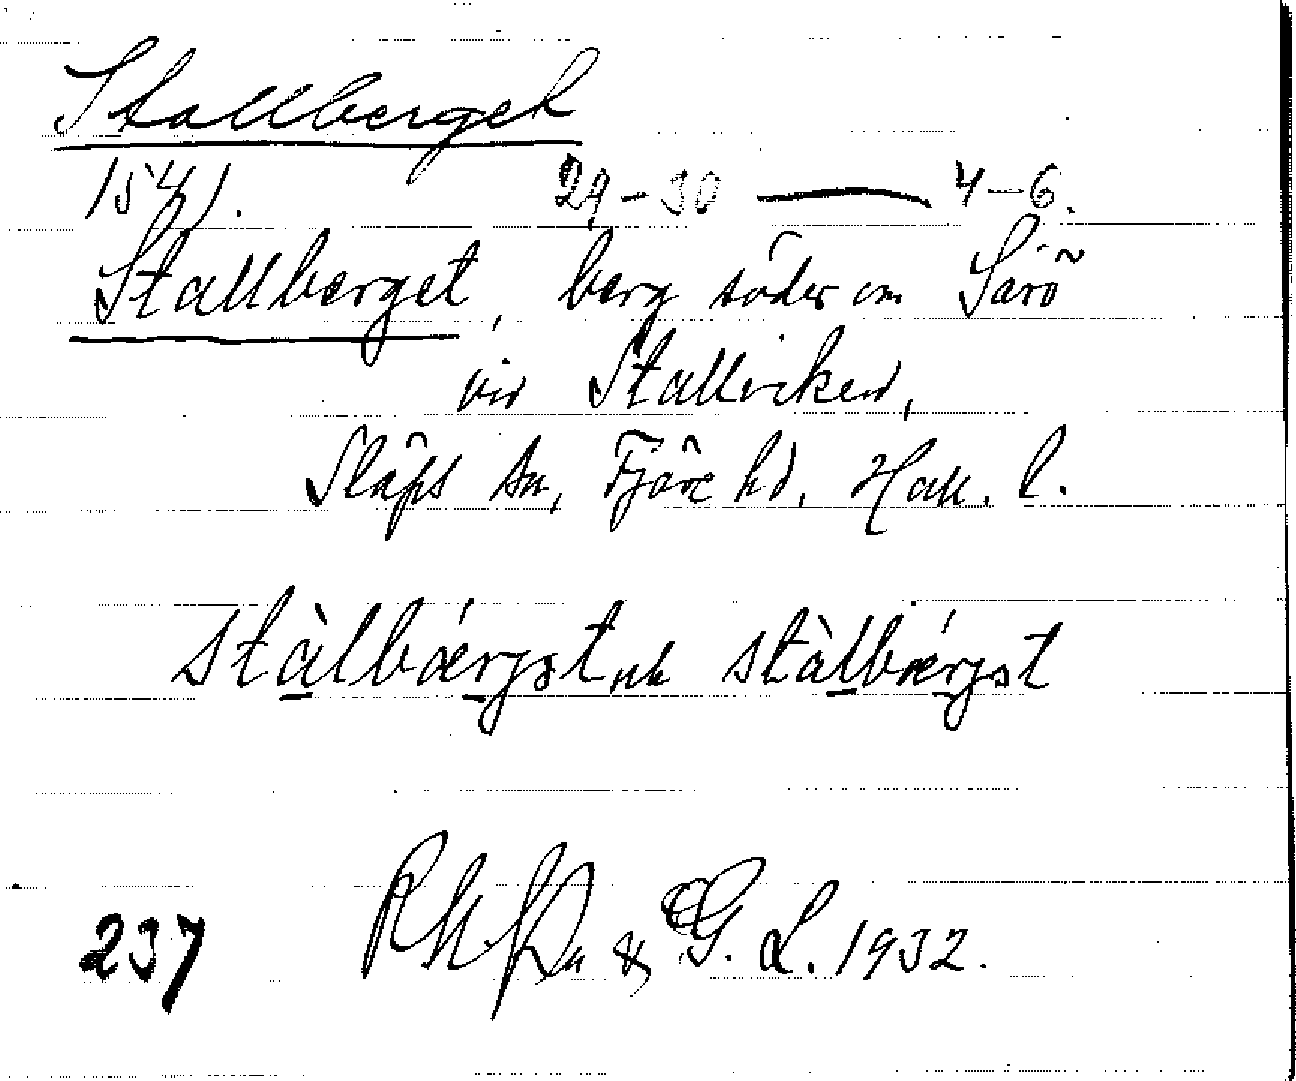 Stallberget
1541. 29-30 — 4-6.
Stallberget, berg söder om Särö
vid Stallviken,
Släps sn, Fjäre hd, Hall. l.
237 & G. L. 1932.